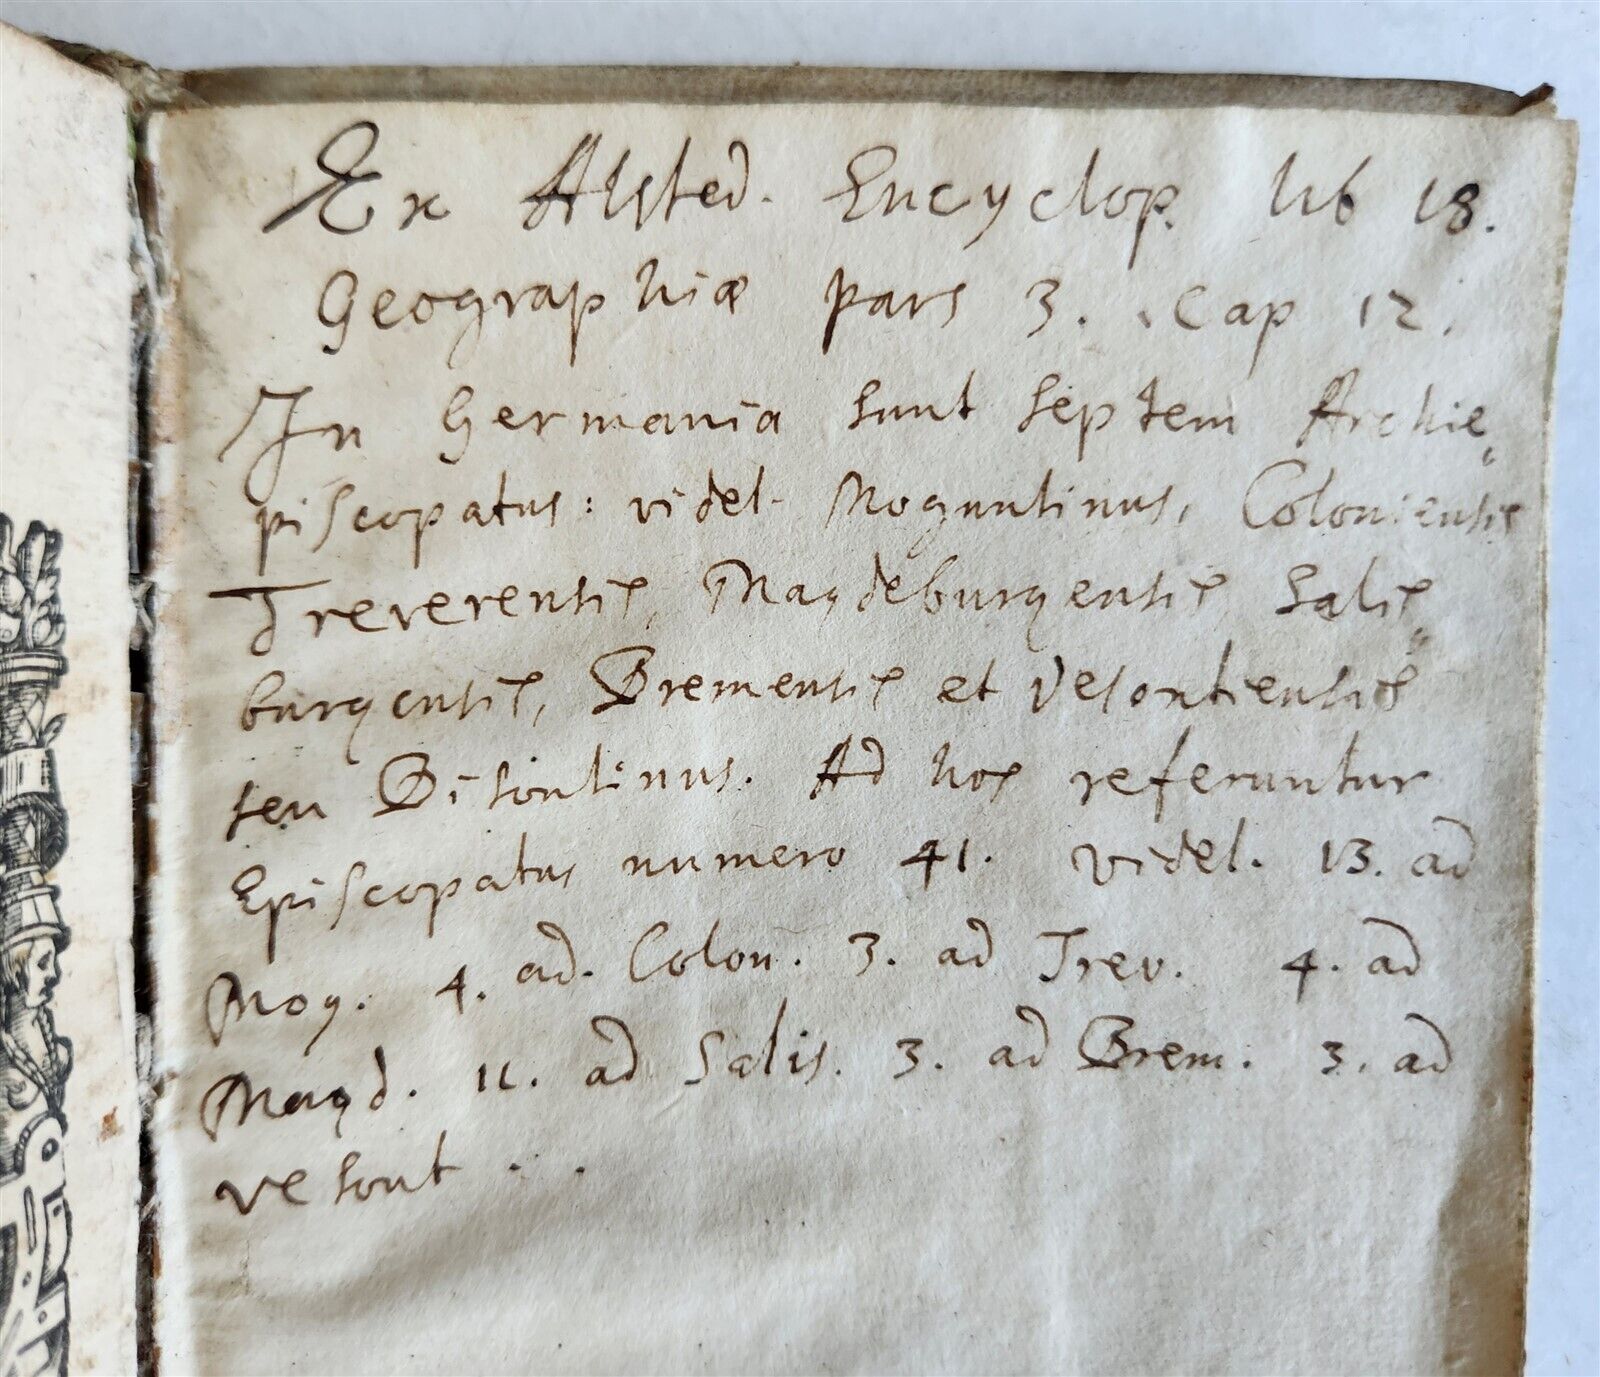 Ex Alsted. Encyclop. lib 18.
Geographiæ pars 3. Cap 12.
In Germania sunt septem Archie„
piscopatus: videl. Moguntinus, Coloniensis
Treverensis, Magdeburgensis Salis„
burgensis, Bremensis et Vesontiensis
seu Bisontinus. Ad hos referuntur
Episcopatus numero 41. videl. 13. ad
Mog. 4. ad. Colon. 3. ad Trev. 4. ad
Magd. 11. ad Salis. 3. ad Brem. 3. ad
Vesont . .